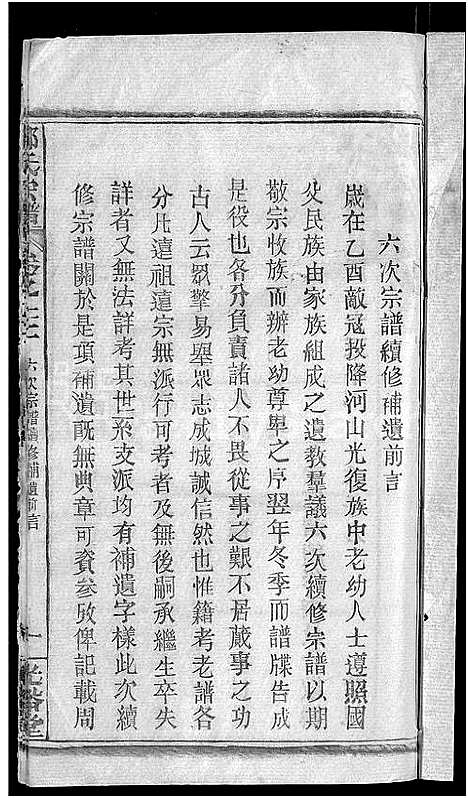 六次宗譜續修補遺前言
歲在乙酉敵冦投降河山光復族中老幼人士遵照國
父民族由家族組成之遺教羣議六次續修宗譜以期
敬宗收族而辦老幼尊卑之序翌年冬季而譜牒告成
是役也各分負責諸人不畏從事之艱不居蕆事之功
古人云眾擎易舉眾志成城誠信然也惟籍考老譜各
分凡遠祖遠宗無派行可考者及無後嗣承繼生卒失
詳者又無法詳考其世系支派均有補遺字樣此次續
修宗譜關於是項補遺旣無典章可資叅攷俾記載周
氏宗譜
六次宗譜續修補遺前言
一
堂